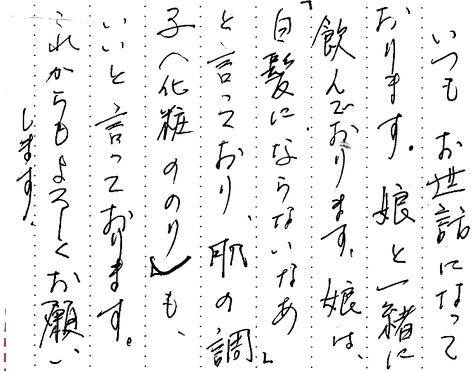 いつもお世話になって
おります。娘と一緒に
飲んでおります。娘は、
「白髪にならないなあ」
と言っており、肌の調
子（化粧ののり）も、
いいと言っております。
これからもよろしくお願い
します。